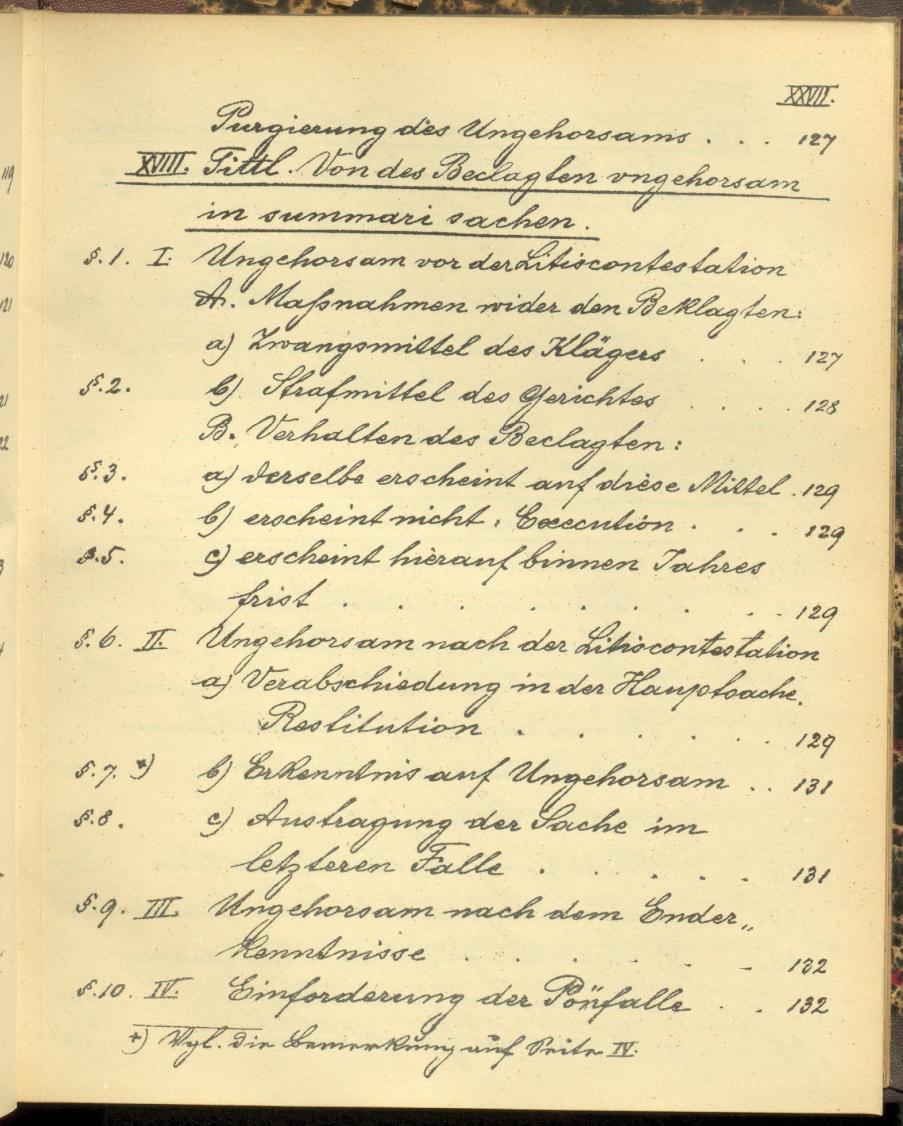 XXVII.
Purgierung des Ungehorsams . . . 127
XVIII. Tittl. Von des Beclagten vngehorsam
in summari sachen.
§.1. I. Ungehorsam vor der Litiscontestation
A. Maßnahmen wider den Beklagten:
a) Zwangsmittel des Klägers . . . 127
§.2. b) Strafmittel des Gerichtes . . . . 128
B. Verhalten des Beclagten:
§.3. a) derselbe erscheint auf diese Mittel . 129
§.4. b) erscheint nicht: Execution . . . 129
§.5. c) erscheint hierauf binnen Jahres
frist . . . . . . . . . 129
§.6. II. Ungehorsam nach der Litiscontestation
a) Verabschiedung in der Hauptsache.
Restitution . . . . . . . 129
§.7. *) b) Erkenntnis auf Ungehorsam . . 131
§.8. c) Austragung der Sache im
letzteren Falle . . . . . . 131
§.9. III. Ungehorsam nach dem Ender„
kenntnisse . . . . . . . 132
§.10. IV. Einforderung der Pönfalle . . 132
*) Vgl. die Bemerkung auf Seite IV.
119
120
121
21
22
3
4